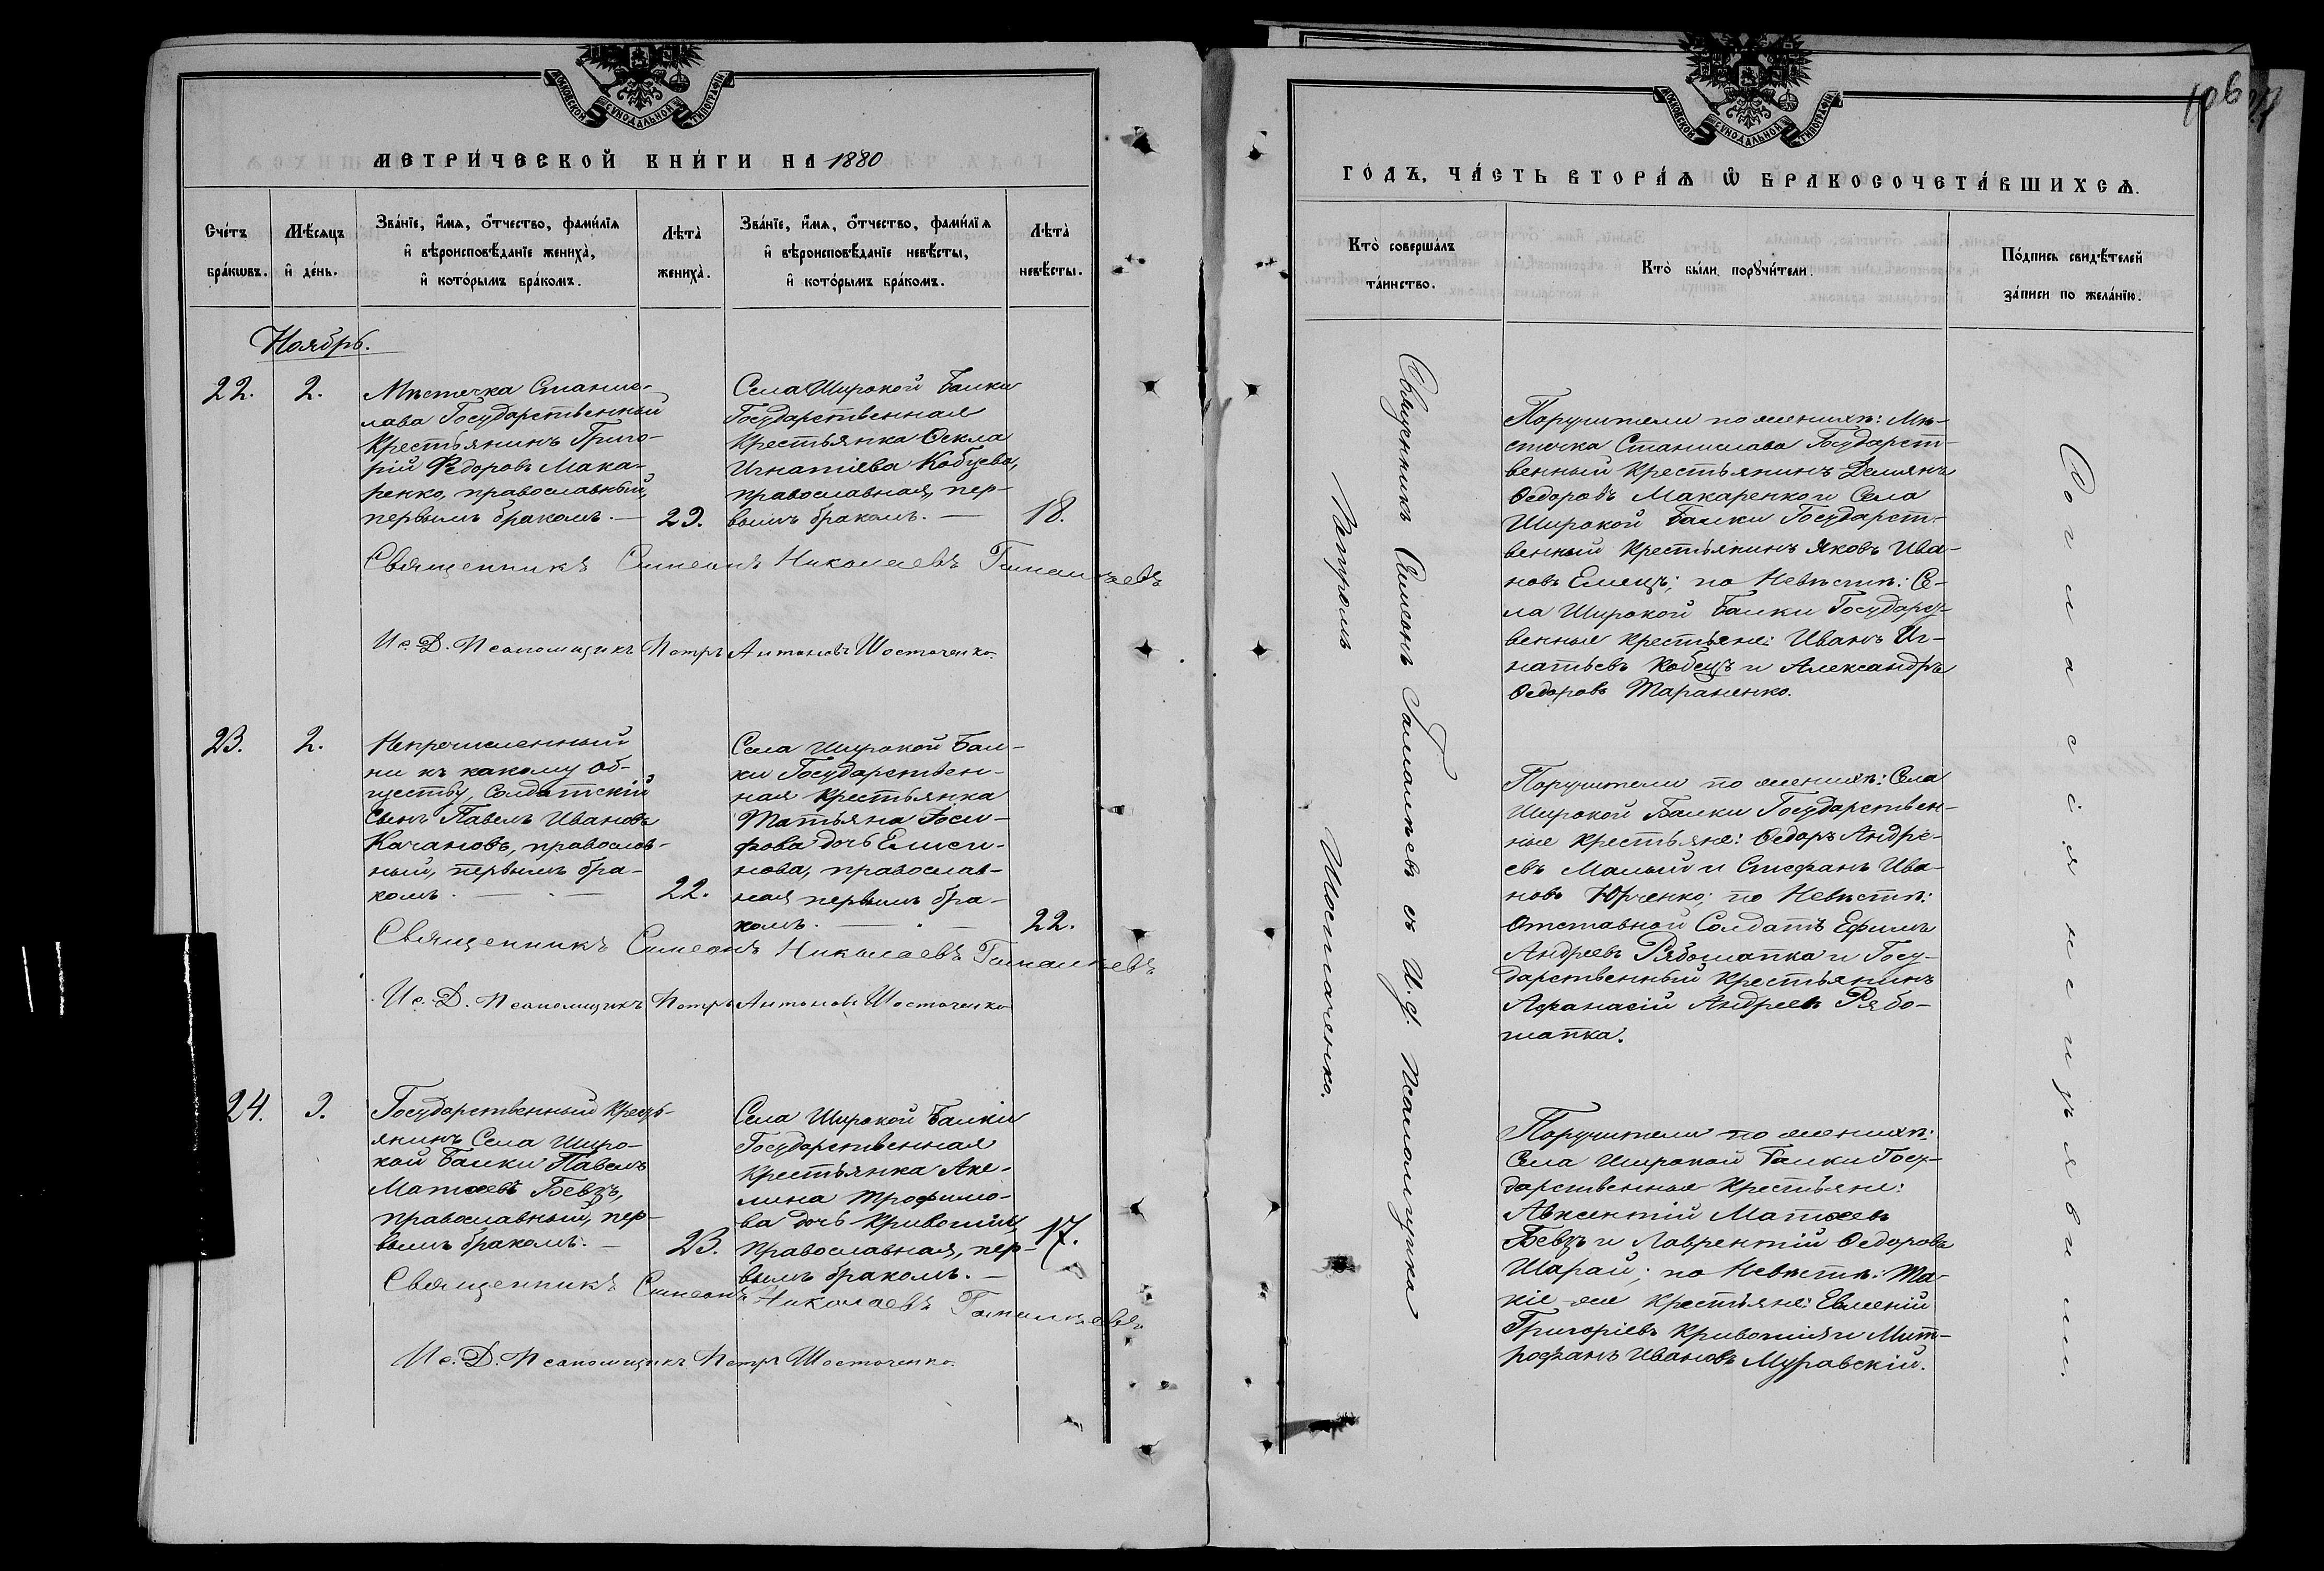 МОСКОВСКОЙ СѴНОДАЛЬНОЙ ТИПОГРАФІИ
МЕТРИ́ЧЕСКОЙ КНИ́ГИ НА 1880
Сче́тъ бра́кѡвъ.
Мѣ́сяцъ и҆ де́нь.
Зва́нїе, и҆́мѧ, ѻ҆́тчество, фами́лїѧ
и҆ вѣроисповѣ́данїе жениха̀,
и҆ кото́рымъ бра́комъ.
Лѣта̀ жениха̀.
Зва́нїе, и҆́мѧ, ѻ҆́тчество, фами́лїѧ
и҆ вѣроисповѣ́данїе невѣ́сты,
и҆ кото́рымъ бра́комъ.
Лѣта̀ невѣ́сты.
Ноябрь.
22.
2.
Мѣстечка Станис-
лава Государственный
Крестьянинъ Григо-
рій Ѳедоровъ Мака-
ренко, православный,
первымъ бракомъ. —
29.
Села Широкой Балки
Государственная
Крестьянка Ѳекла
Игнатіева Кобцева,
православная, пер-
вымъ бракомъ. —
18.
Священникъ Симеонъ Николаевъ Гамалѣевъ
Ис. Д. Псаломщикъ Петръ Антоновъ Шостаченко.
23.
2.
Непричисленный
ни къ какому об-
ществу, Солдатскій
Сынъ Павелъ Ивановъ
Качановъ, православ-
ный, первымъ бра-
комъ. —
22.
Села Широкой Бал-
ки Государствен-
ная Крестьянка
Татьяна Іоси-
фова дочь Елиси-
нова, православ-
ная первымъ бра-
комъ. —
22.
Священникъ Симеонъ Николаевъ Гамалѣевъ
Ис. Д. Псаломщикъ Петръ Антоновъ Шостаченко
24.
9.
Государственный Крест-
янинъ Села Широ-
кой Балки Павелъ
Матѳеевъ Бевзъ,
православный, пер-
вымъ бракомъ. —
23.
Села Широкой Балки
Государственная
Крестьянка Аки-
лина Трофимо-
ва дочь Кривошіи,
православная, пер-
вымъ бракомъ. —
17.
Священникъ Симеонъ Николаевъ Гамалѣевъ
Ис. Д. Псаломщикъ Петръ Шостаченко.
106
МОСКОВСКОЙ СѴНОДАЛЬНОЙ ТИПОГРАФІИ
ГО́ДЪ, ЧА́СТЬ ВТОРА́Ѧ Ѽ БРАКОСОЧЕТА́ВШИХСѦ.
Кто̀ соверша́лъ та́инство.
Кто̀ бы́ли порꙋчи́тели.
По́дпись свидѣ́телей
за́писи по жела́нїю.
Священникъ Симеонъ Гамалѣевъ съ И. д. Псаломщика
Петромъ Шостаченко.
Поручители по женихѣ: Мѣ-
стечка Станислава Государст-
венный Крестьянинъ Демянъ
Ѳедоровъ Макаренко и Села
Широкой Балки Государст-
венный Крестьянинъ Яковъ Ива-
новъ Емецъ; по Невѣстѣ: Се-
ла Широкой Балки Государст-
венные Крестьяне: Иванъ Иг-
натьевъ Кобецъ и Александръ
Ѳедоровъ Тараненко.
Поручители по женихѣ: Села
Широкой Балки Государствен-
ные Крестьяне: Ѳедоръ Андре-
евъ Малый и Стефанъ Ива-
новъ Юрченко; по Невѣстѣ:
Отставной Солдатъ Ефимъ
Андреевъ Рябошапка и Госу-
дарственный Крестьянинъ
Афанасій Андреевъ Рябо-
шапка.
Поручители по женихѣ:
Села Широкой Балки Госу-
дарственные Крестьяне:
Авксентій Матѳеевъ
Бевзъ и Лаврентій Ѳедоровъ
Шарай; по Невѣстѣ: Та-
кіе-же Крестьяне: Евменій
Григоріевъ Кривошія и Мит-
рофанъ Ивановъ Муравскій.
Согласія не изъявили.